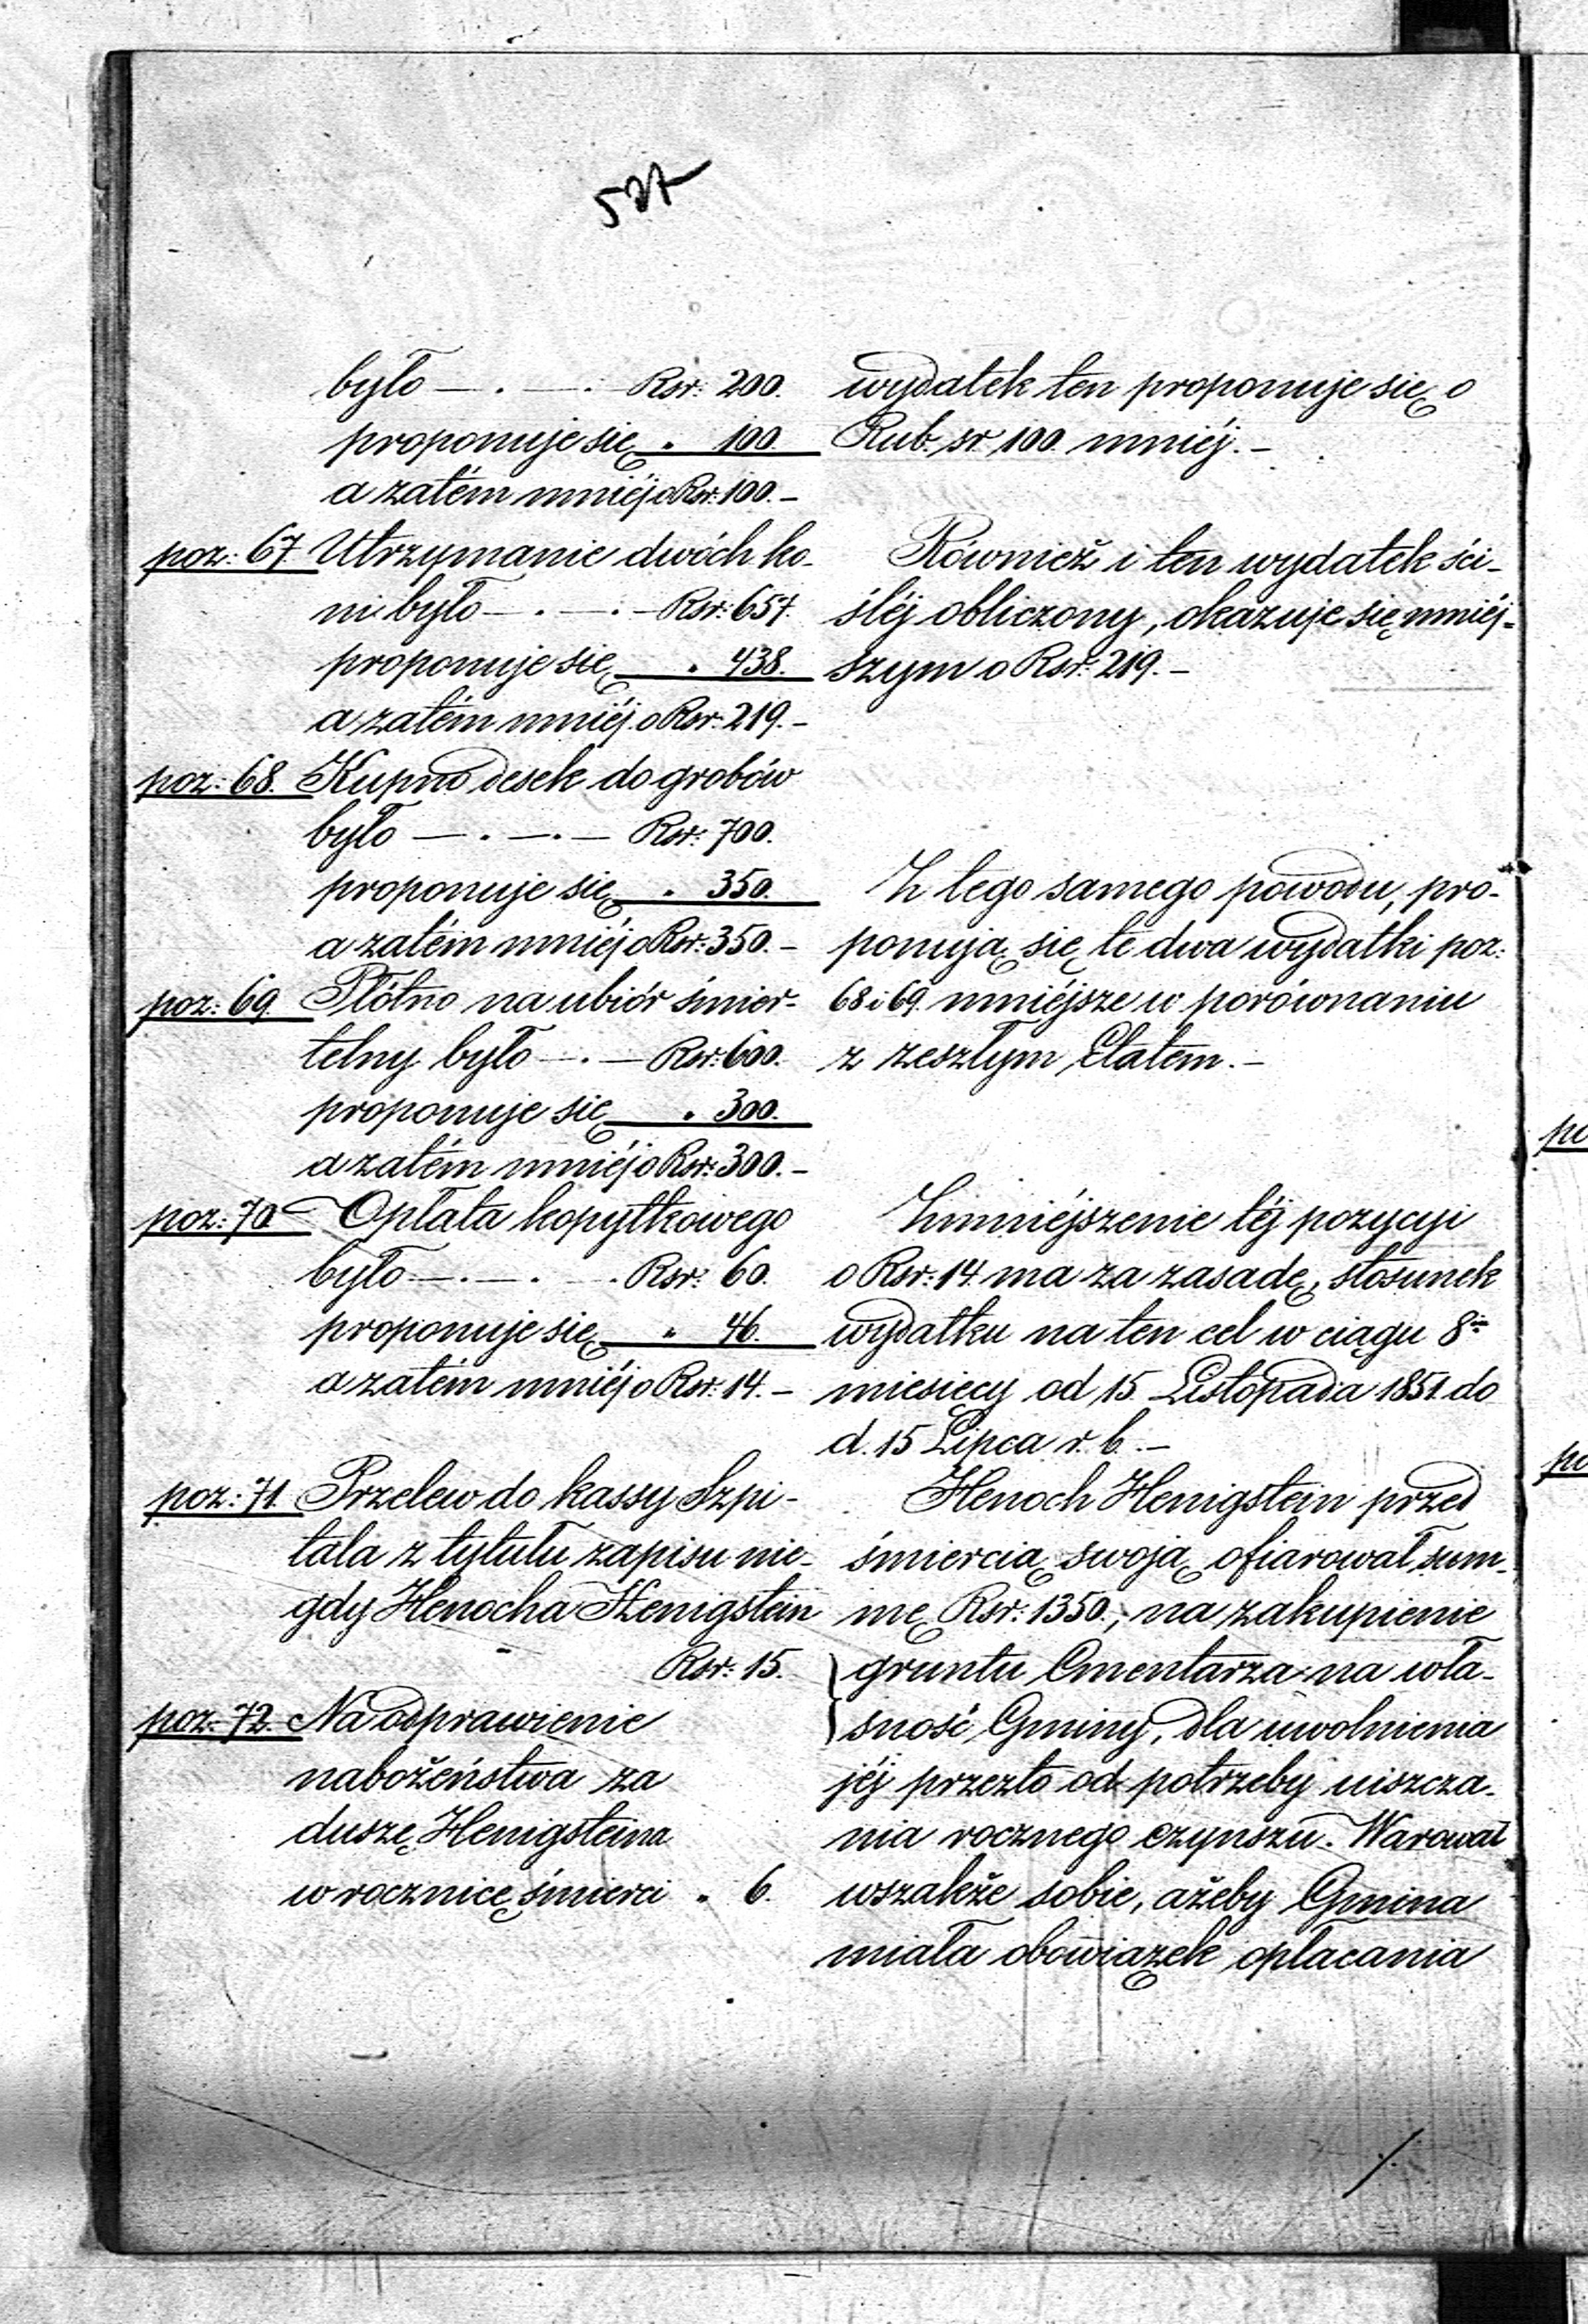 527
było — . — . Rsr: 200.
proponuje się „ 100.
a zatém mniéj o Rsr: 100. –
poz: 67. Utrzymanie dwóch ko-
ni było — . — . — Rsr: 657.
proponuje się „ 438.
a zatém mniéj o Rsr: 219. –
poz: 68. Kupno desek do grobów
było — . — . — Rsr: 700.
proponuje się „ 350.
a zatém mniéj o Rsr: 350. –
poz: 69. Płótno na ubiór śmier-
telny było — . — Rsr: 600.
proponuje się „ 300.
a zatém mniéj o Rsr: 300. –
poz: 70 Opłata kopytkowego
było — . — . . Rsr: 60.
proponuje się „ 46.
a zatém mniéj o Rsr: 14. –
poz: 71. Przelew do kassy Szpi-
tala z tytułu zapisu nie-
gdy Henocha Henigstein
Rsr: 15.
poz: 72. Na odprawienie
nabożeństwa za
duszę Henigsteina
w rocznicę śmierci „ 6.
wydatek ten proponuje się o
Rub. sr 100 mniéj. –
Również i ten wydatek ści-
śléj obliczony, okazuje się mniéj-
szym o Rsr: 219. –
Z tego samego powodu, pro-
ponują się te dwa wydatki poz:
68 i 69. mniéjsze w porównaniu
z zeszłym Etatem. –
Zmniéjszenie téj pozycyi
o Rsr: 14. ma za zasadę, stosunek
wydatku na ten cel w ciągu 8iu
miesięcy od 15 Listopada 1851. do
d. 15 Lipca r. b. –
Henoch Henigstein przed
śmiercią swoją ofiarował sum-
mę Rsr: 1350., na zakupienie
gruntu Cmentarza na wła-
sność Gminy, dla uwolnienia
jéj przezto od potrzeby uiszcza-
nia rocznego czynszu. Warował
wszakże sobie, ażeby Gmina
miała obowiązek opłacania